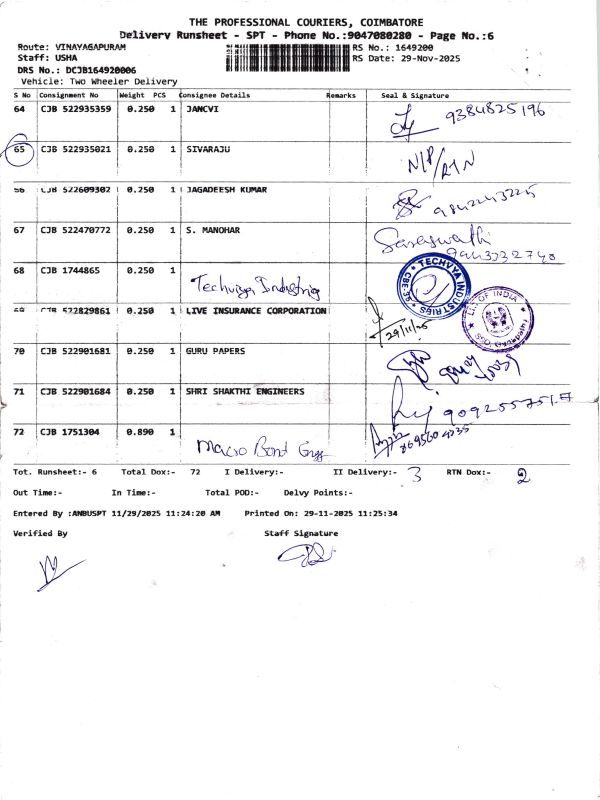 THE PROFESSIONAL COURIERS, COIMBATORE
Delivery Runsheet - SPT - Phone No.:9047080280 - Page No.:6
Route: VINAYAGAPURAM RS No.: 1649200
Staff: USHA RS Date: 29-Nov-2025
DRS No.: DCJB164920006
Vehicle: Two Wheeler Delivery
S No Consignment No Weight PCS Consignee Details Remarks Seal & Signature
64 CJB 522935359 0.250 1 JANCVI 9384825196
65 CJB 522935021 0.250 1 SIVARAJU N/P/RTN
66 CJB 522609302 0.250 1 JAGADEESH KUMAR
67 CJB 522470772 0.250 1 S. MANOHAR Saraswathi
68 CJB 1744865 0.250 1 Techvya Industries TECHVYA INDUSTRIES CBE-35
69 CJB 522829861 0.250 1 LIVE INSURANCE CORPORATION 29/11/25 LIC OF INDIA
70 CJB 522901681 0.250 1 GURU PAPERS
71 CJB 522901684 0.250 1 SHRI SHAKTHI ENGINEERS 9092557517
72 CJB 1751304 0.890 1 Macro Bond Engg
Tot. Runsheet:- 6 Total Dox:- 72 I Delivery:- II Delivery:- 3 RTN Dox:- 2
Out Time:- In Time:- Total POD:- Delvy Points:-
Entered By :ANBUSPT 11/29/2025 11:24:20 AM Printed On: 29-11-2025 11:25:34
Verified By Staff Signature